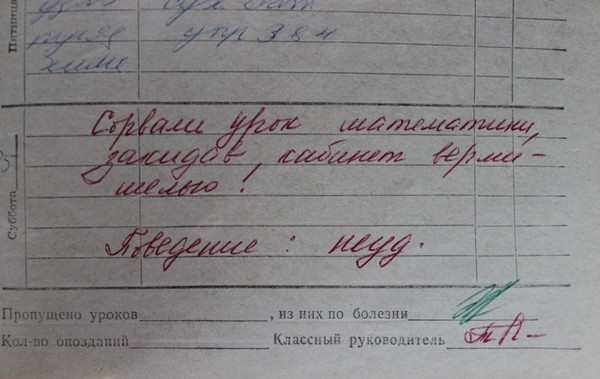 Пятница
упр 384
химия
Сорвали урок математики,
закидав, кабинет верми-
шелью!
Суббота
Поведение: неуд.
Пропущено уроков , из них по болезни
Кол-во опозданий Классный руководитель